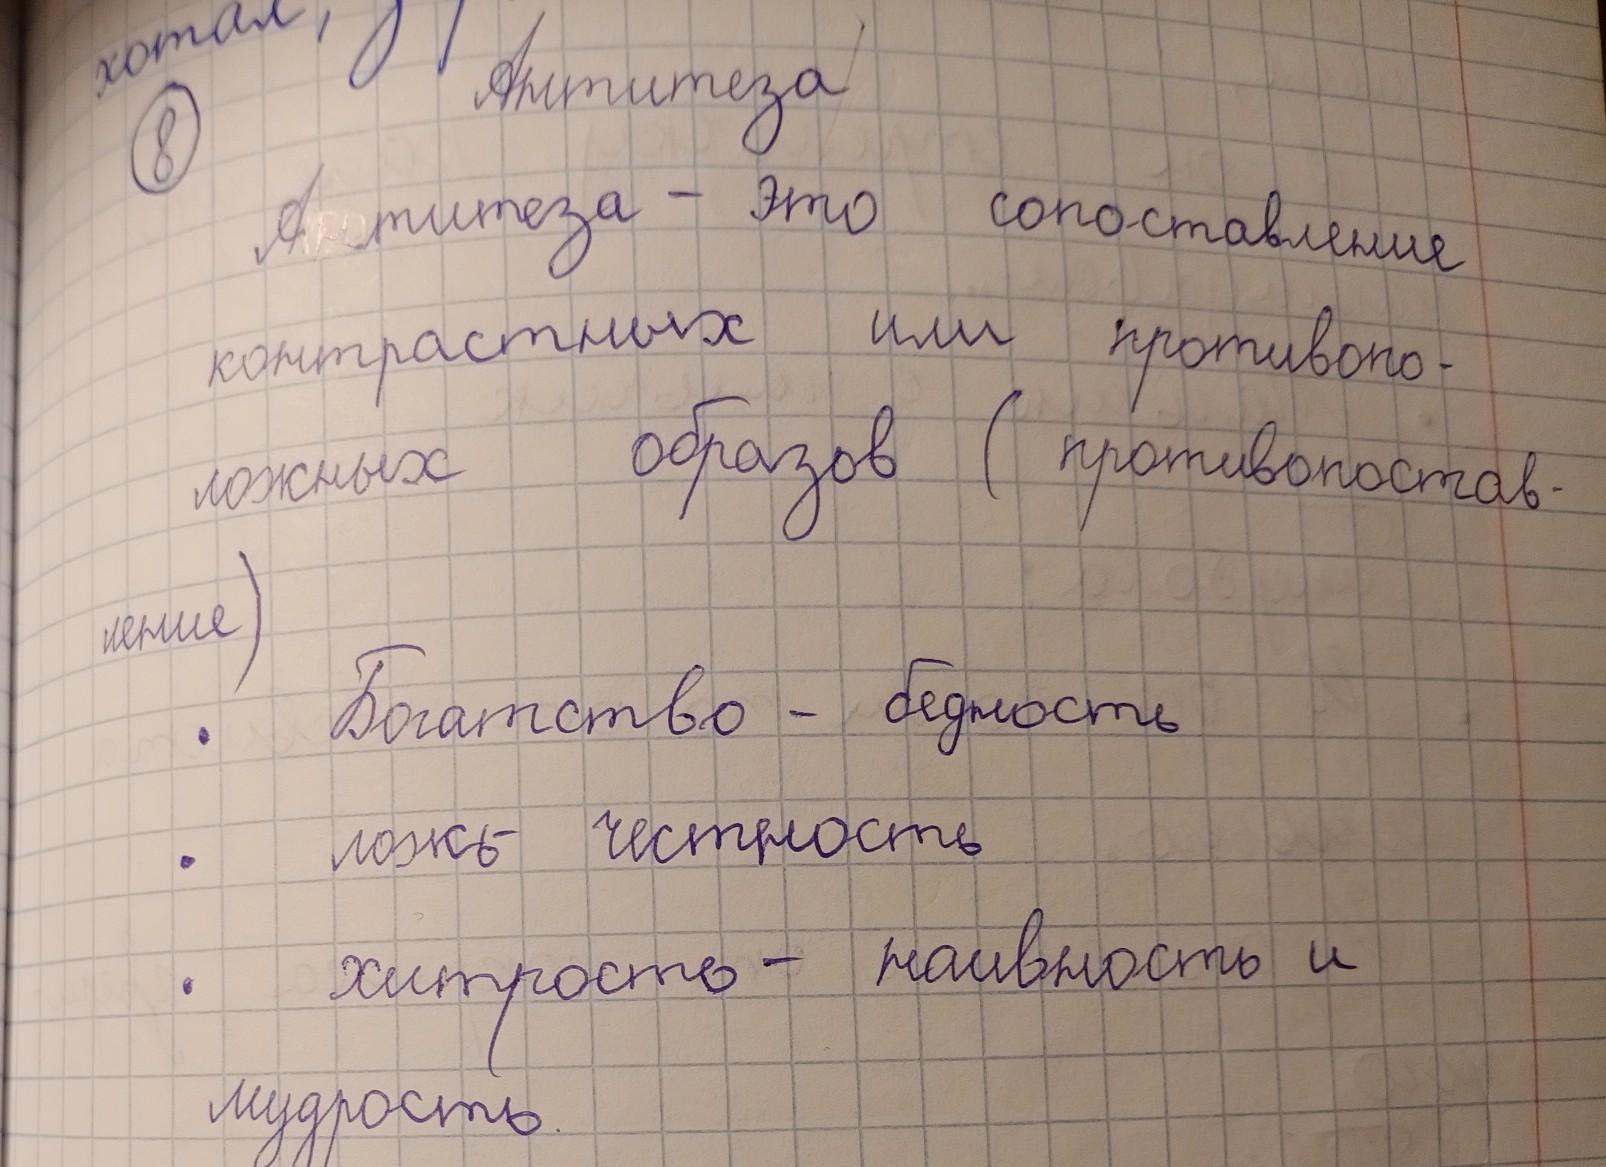 хотал,
⑧ Антитеза
Антитеза - это сопоставление
контрастных или противопо-
ложных образов (противопостав-
ление)
• Богатство - бедность
• ложь- честность
• хитрость - наивность и
мудрость.